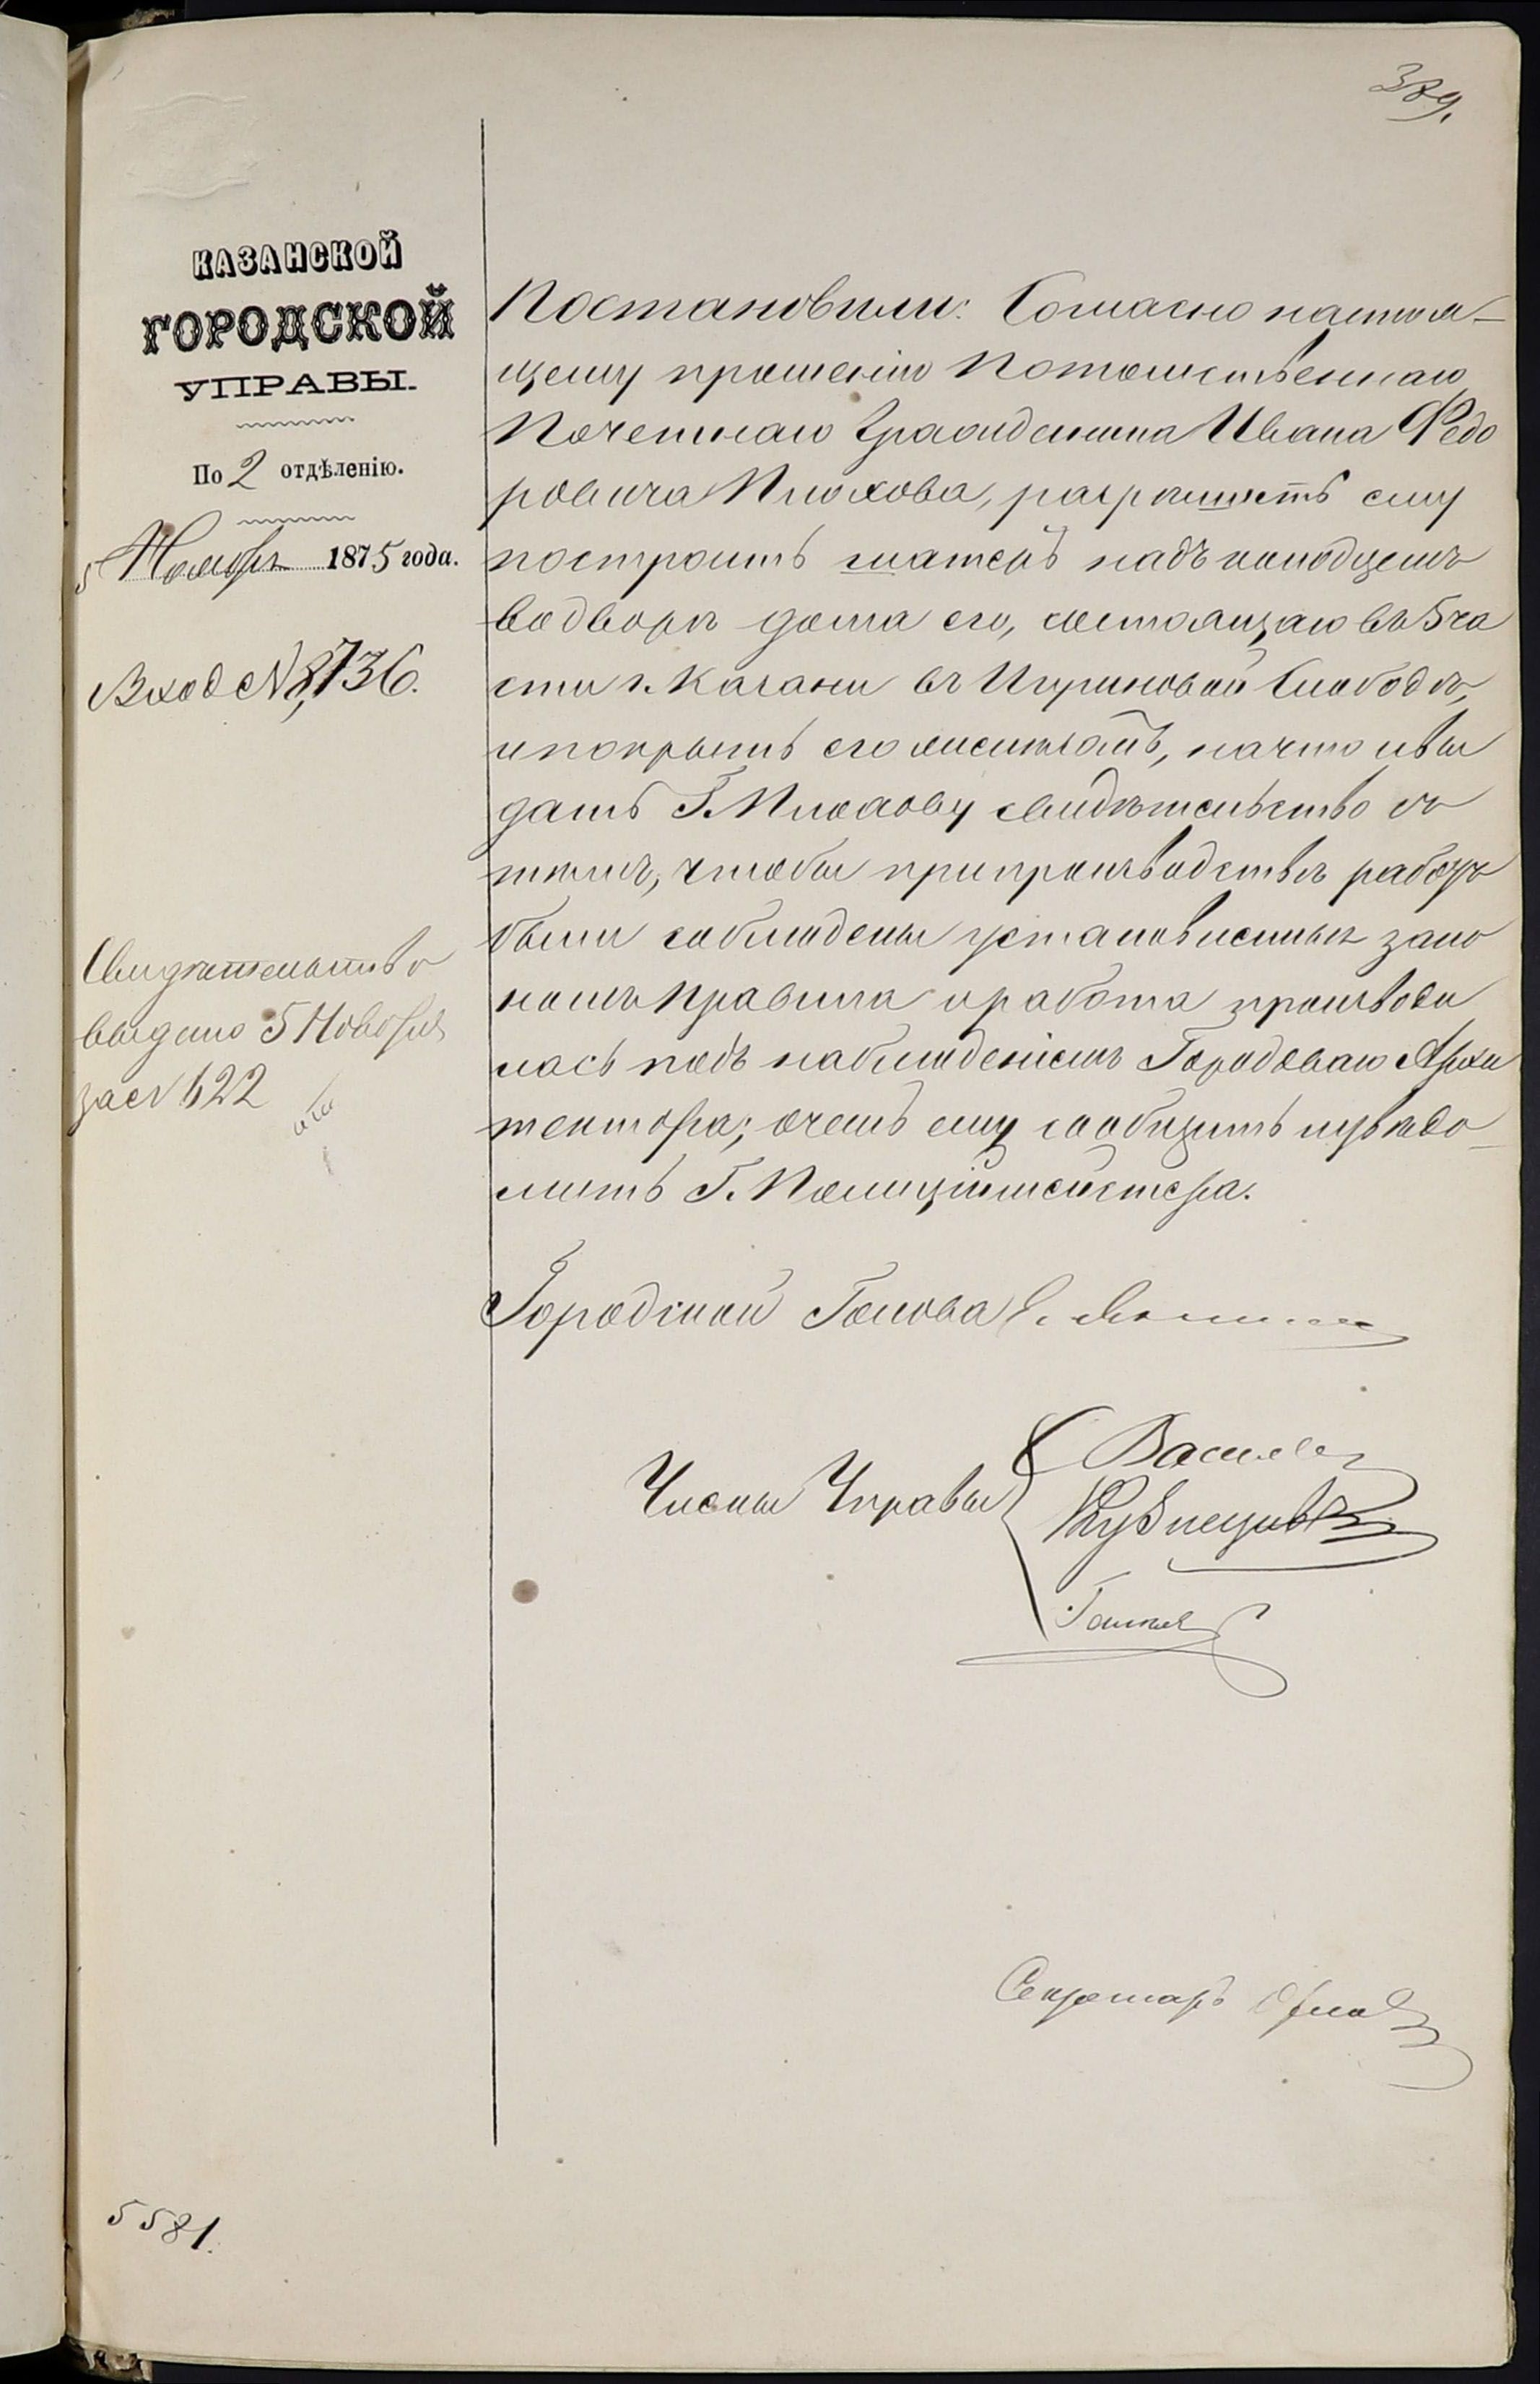 389.
КАЗАНСКОЙ
ГОРОДСКОЙ
УПРАВЫ.
По 2 отдѣленію.
5 Ноября 1875 года.
Вход №8,736.
Свидѣтельство
выдано 5 Ноября
за № 622
Постановили: Согласно настоя-
щему прошенію Потомственнаго
Почетнаго Гражданина Ивана Федо
ровича Плохова, разрѣшить ему
построить шатеръ надъ колодцемъ
во дворѣ дома его, состоящаго въ 5 ча
сти г. Казани въ Игумновой Слободѣ,
и покрыть его желѣзомъ, на что и вы
дать Г. Плохову свидѣтельство съ
тѣмъ, чтобы при производствѣ работъ
были соблюдены установленныя зако
номъ правила и работа производи
лась подъ наблюденіемъ Городоваго Архи
тектора; о чемъ ему сообщить и увѣдо-
мить Г. Полиціймейстера.
Городской Голова
Члены Управы
Васильев
Кузнецовъ
Секретарь
5581.